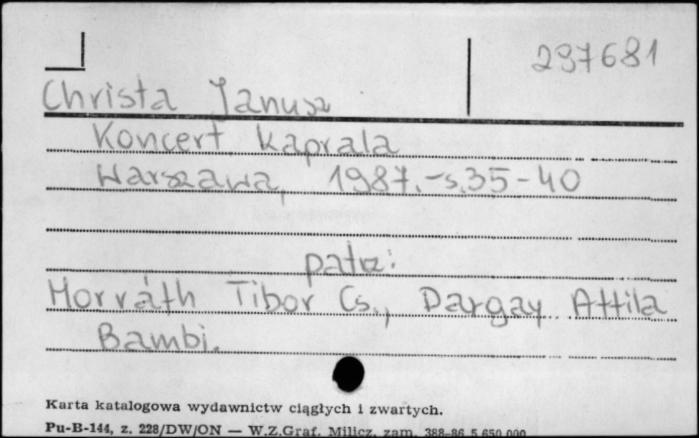 297681
Christa Janusz
Koncert kaprala
Warszawa, 1987.-s.35-40
patrz:
Horváth Tibor Cs., Dargay Attila
Bambi.
Karta katalogowa wydawnictw ciągłych i zwartych.
Pu-B-144, z. 228/DW/ON — W.Z.Graf. Milicz, zam. 388-86 5 650 000